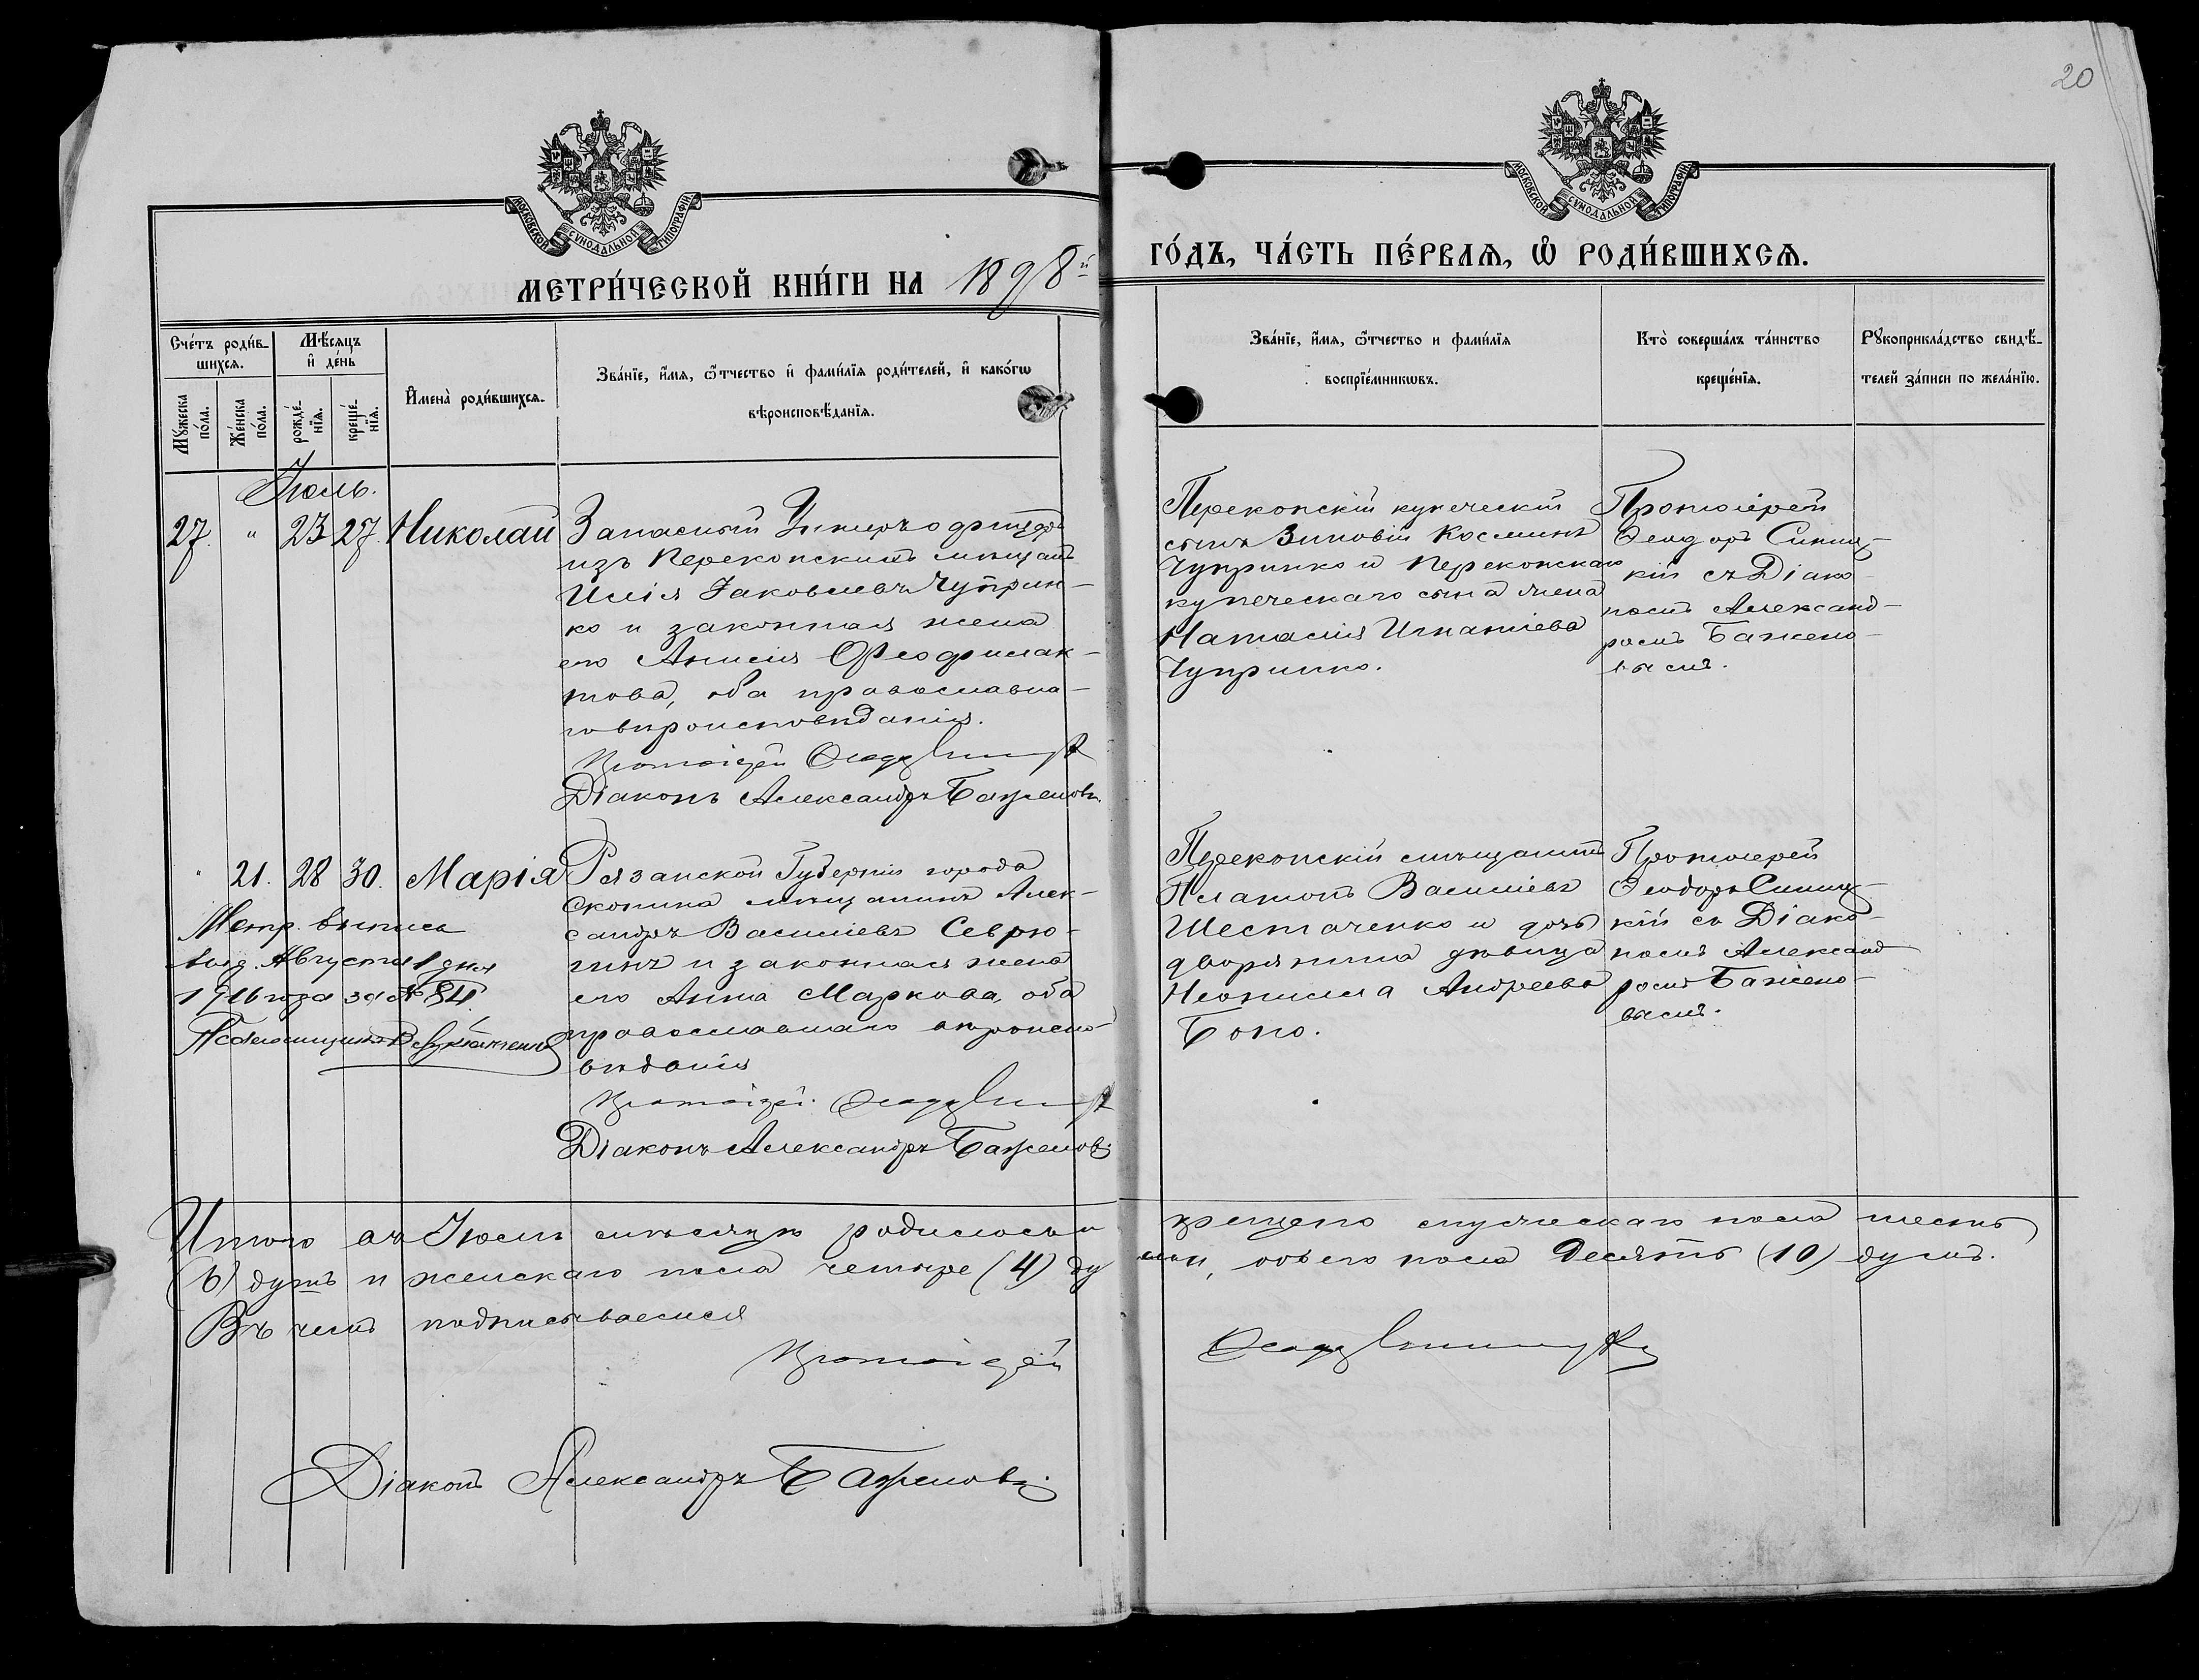 20
МОСКОВСКОЙ СУНОДАЛЬНОЙ ТИПОГРАФІИ
МОСКОВСКОЙ СУНОДАЛЬНОЙ ТИПОГРАФІИ
МЕТРИ́ЧЕСКОЙ КНИ́ГИ НА 1898й
ГО́ДЪ, ЧА́СТЬ ПЕ́РВАѦ, Ѡ҆ РОДИ́ВШИХСѦ.
Сче́тъ роди́в-
шихсѧ.
Мꙋ́жеска
по́ла.
Же́нска
по́ла.
Мѣ́сѧцъ
и҆ де́нь
рожде́-
нїѧ.
креще́-
нїѧ.
И҆мена̀ роди́вшихсѧ.
Зва́нїе, и҆́мѧ, ѻ҆́тчество и҆ фами́лїѧ роди́телей, и҆ како́гѡ
вѣроисповѣ́данїѧ.
Зва́нїе, и҆́мѧ, ѻ҆́тчество и фами́лїѧ
воспрїе́мникѡвъ.
Кто̀ соверша́лъ та́инство
креще́нїѧ.
Рꙋкоприкла́дство свидѣ́-
телей за́писи по жела́нїю.
Іюль.
27. " 23 27. Николай
Запасный Унтеръ офицеръ
изъ Перекопскихъ мѣщанъ
Илія Іаковлевъ Чуприн-
ко и законная жена
его Анисія Феофилак-
това, оба православна-
го вѣроисповѣданія.
Протоіерей
Діаконъ Александръ Баженовъ.
Перекопскій купеческій
сынъ Зиновій Косминъ
Чупринко и Перекопскаго
купеческаго сына жена
Наталія Игнатіева
Чупринко.
Протоіерей
Ѳеодоръ Синиц-
кій съ Діако-
номъ Александ-
ромъ Бажено-
вымъ.
" 21. 28 30. Марія
Метр. выпись
выд. Августа 1 дня
1916 года за № 84.
Псаломщикъ
Рязанской Губерніи города
Скопина мѣщанинъ Алек-
сандръ Василіевъ Севрю-
гинъ и законная жена
его Анна Маркова, оба
православнаго вѣроиспо-
вѣданія
Протоіерей
Діаконъ Александръ Баженовъ
Перекопскій мѣщанинъ
Платонъ Василіевъ
Шестаченко и дочь
дворянина дѣвица
Неонилла Андреева
Боно.
Протоіерей
Ѳеодоръ Синиц-
кій съ Діако-
номъ Александ-
ромъ Бажено-
вымъ.
Итого въ Іюлѣ мѣсяцѣ родилось и крещено мужескаго пола шесть
(6) душъ и женскаго пола четыре (4) души, обоего пола десять (10) душъ.
Въ чемъ подписываемся
Протоіерей
Діаконъ Александръ Баженовъ.